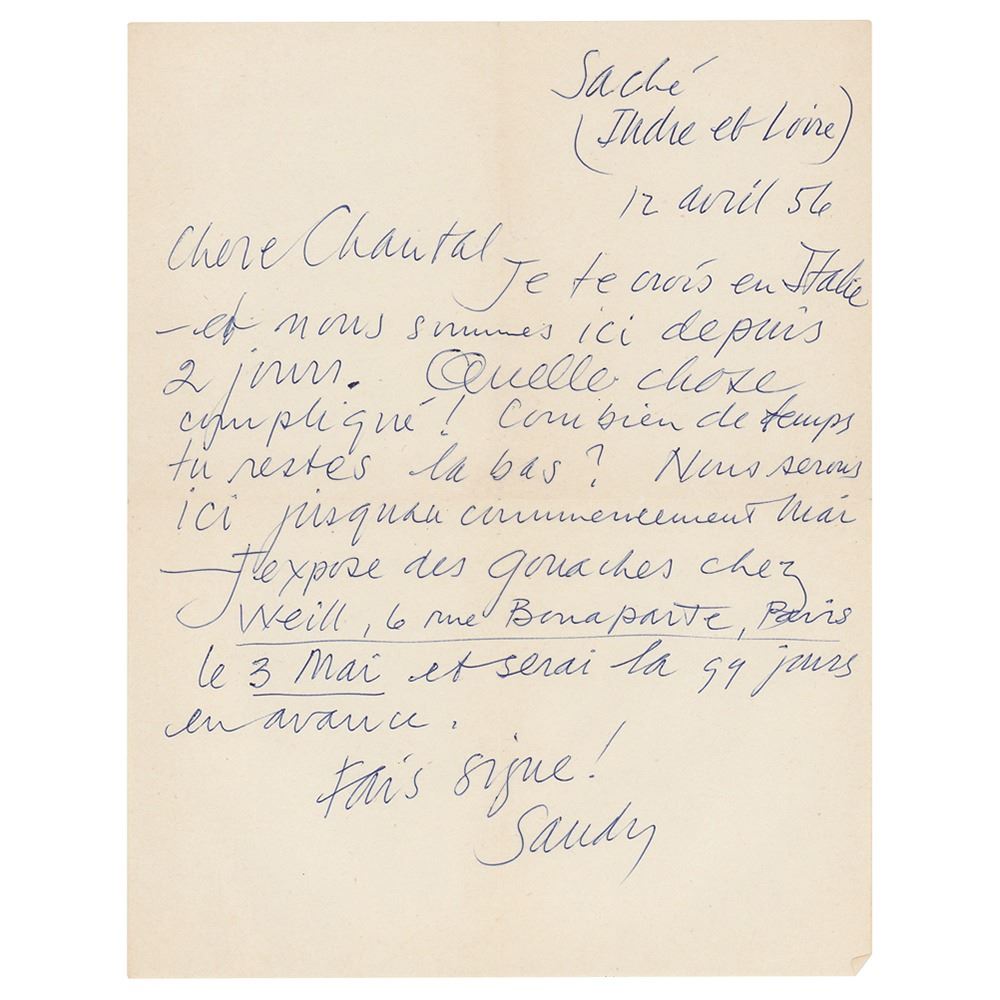 Saché
(Indre et Loire)
12 avril 56
Chere Chantal
Je te crois en Italie
– et nous sommes ici depuis
2 jours. Quelle chose
compliqué! Combien de temps
tu restes la bas? Nous serons
ici jusquau commencement Mai
— J'expose des gouaches chez
Weill, 6 rue Bonaparte, Paris
le 3 Mai et serai la qq jours
en avance.
Fais signe!
Sandy